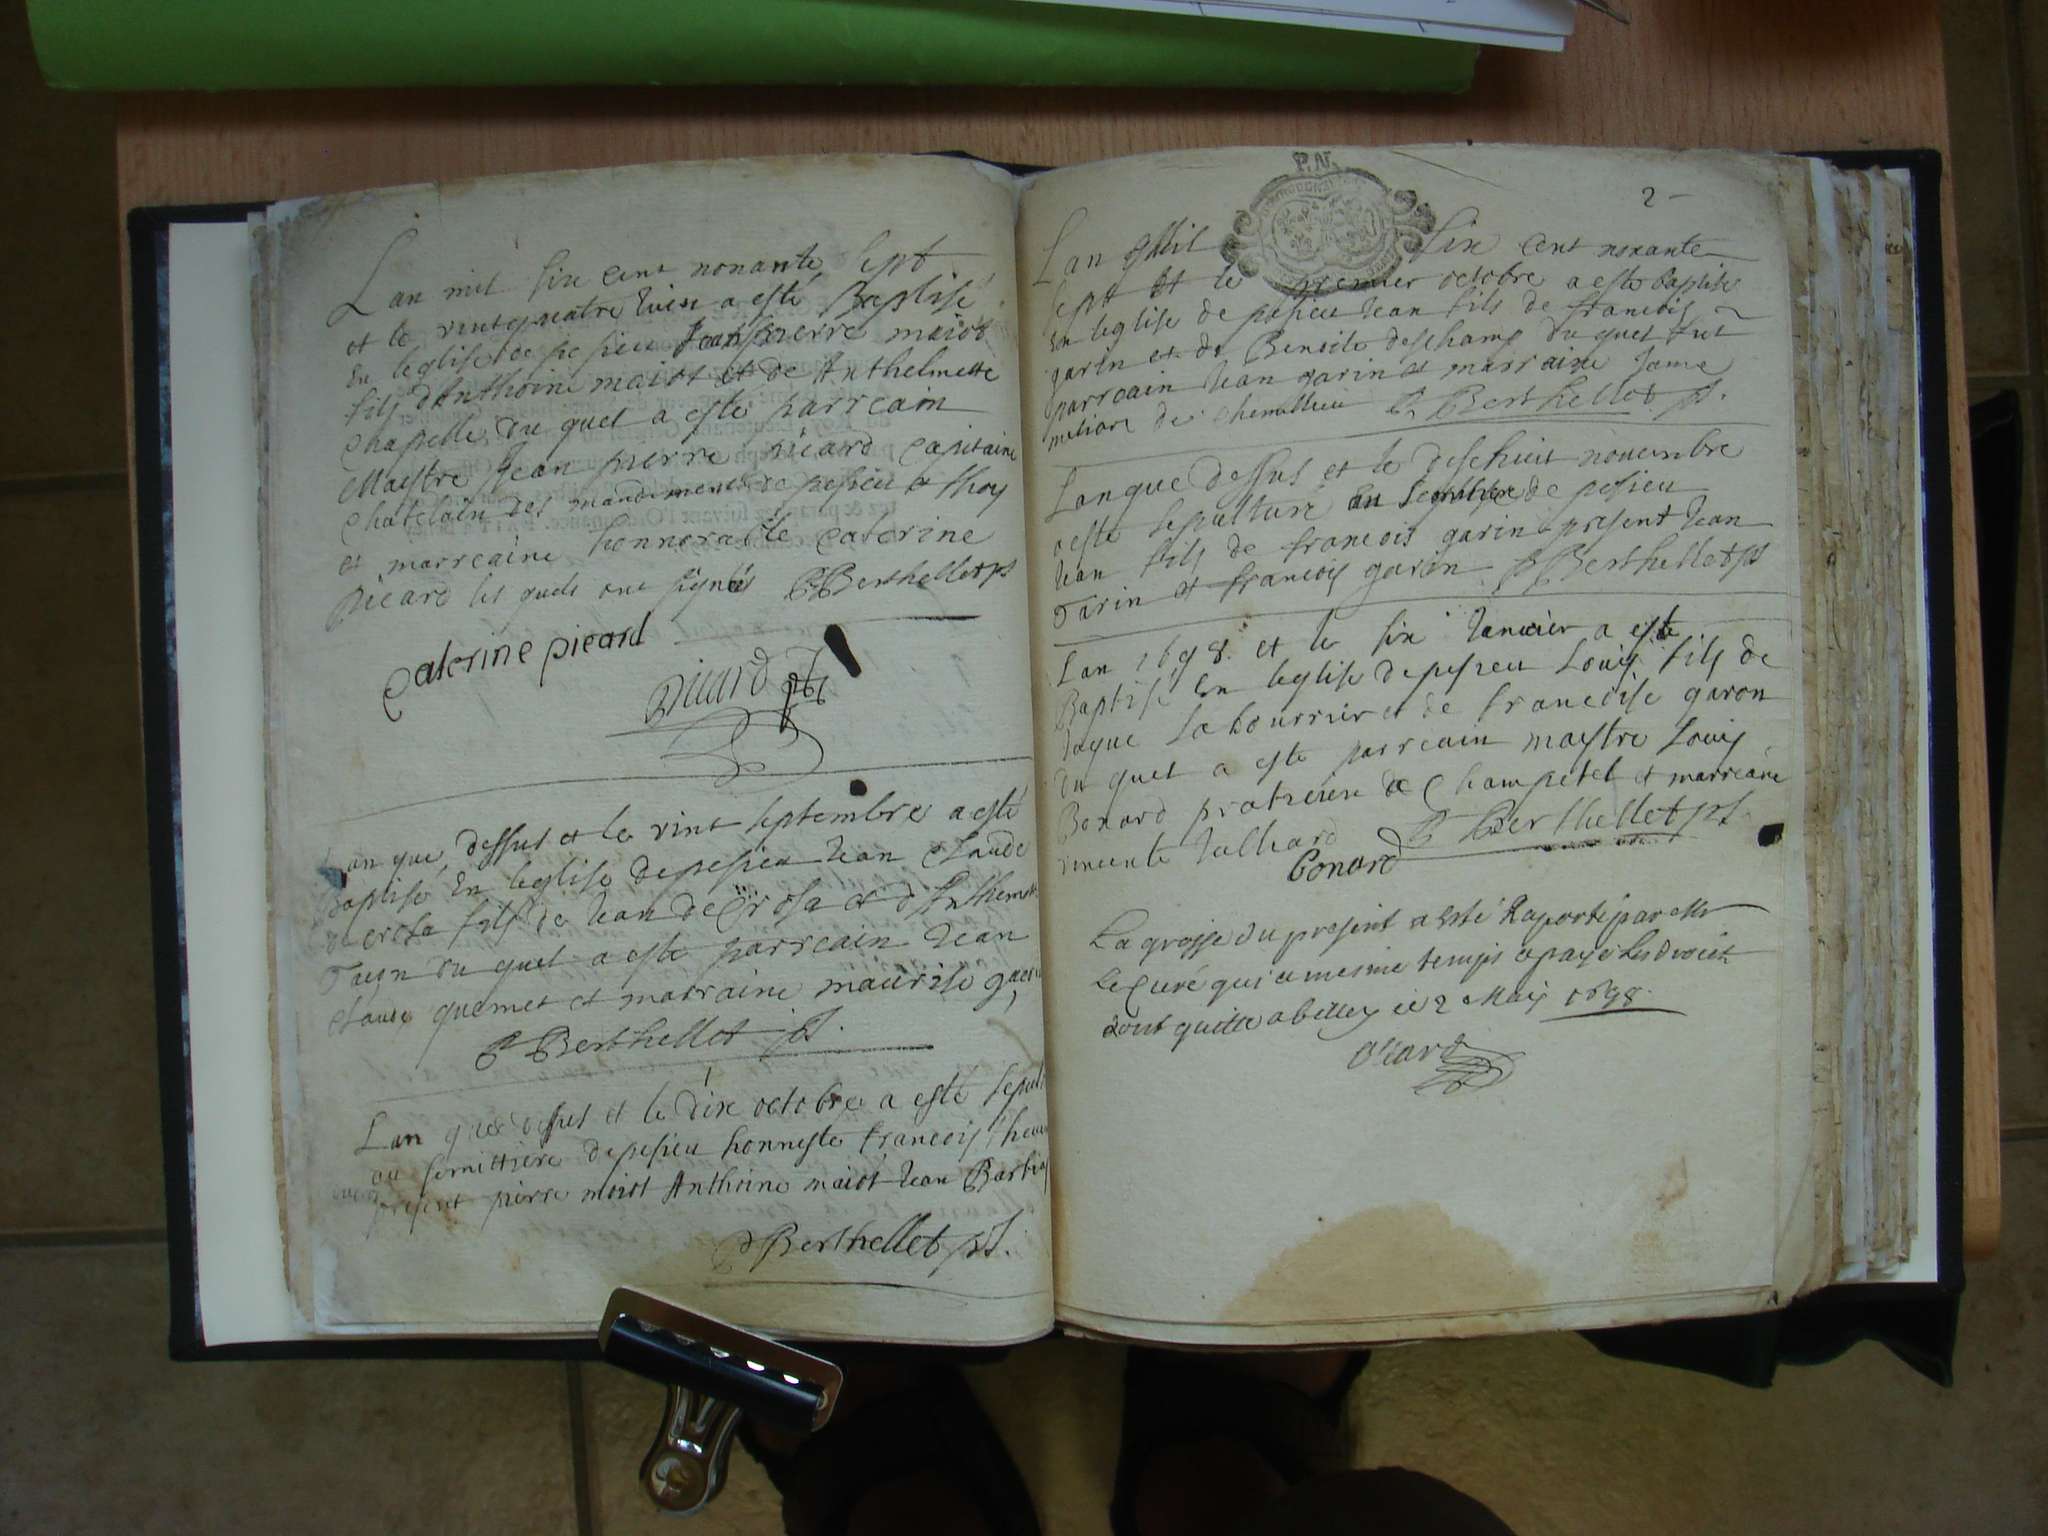 Lan mil six cent nonante sept
et le vintquatre a esté Baptisé
En leglise de pesieu Jean pierre maiot
fils d'Anthoine maiot et de Anthelmette
chapelle du quel a este parrcain
Maystre Jean pierre picard Capitaine
chatelain des mandement de pesieu et
et marrcaine honnorable Caterine
picard les quels ont signés P Berthellet pt
Caterine picard
picard
Lan que dessus et le vint septembre a esté
Baptisé En leglise de pesieu Jean Claude
decrosa fils de Jean de Crosa et d'Anthemet
du quel a este parrcain Jean
Claude quemet et marraine
P Berthellet pt.
Lan que dessus et le dix octobre a esté sepult
au semittiere de pesieu honneste francois
present pierre moiot Anthoine maiot Jean Barbi
P Berthellet pt.
P. N.
2
Lan Mil six cent nonante
sept et le premier octobre a este baptise
En leglise de pesieu Jean fils de francois
garin et de Benoite deschamp du quel fut
parrcain Jean garin et marraine Jame
de chemillieu P Berthellet pt.
Lan que dessus et le deschuit novembre
a este sepulturé au de pesieu
Jean fils de francois garin present Jean
Tarin et francois garin P Berthellet pt
Lan 1698. et le six Janvier a este
Baptise En leglise de pesieu Louis fils de
Jaque Labourrier et de francoise garon
du quel a este parrcain maystre Louis
Bonard praticien de Champetel et marrcaine
vincente Julliard P Berthellet pt.
Bonard
La grosse du present a esté Raporté par Mr
Le Curé qui a mesme temps a payé Les droits
dont quitte a belley ce 2 May 1698.